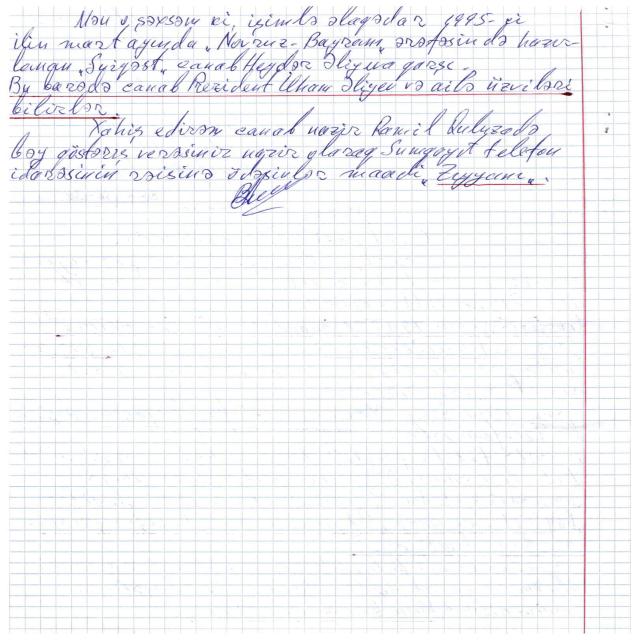 Mən o şəxsəm ki, işimlə əlaqədar 1995-ci
ilin mart ayında „Novruz-Bayram„ ərəfəsində hazır-
lanan „Suiqəst„ canab Heydər Əliyevə qarşı.
Bu barədə canab Prezident İlham Əliyev və ailə üzviləri
bilirlər.
Xahiş edirəm canab nazir Ramil Quluzadə
bəy göstəriş verəsiniz nazir olaraq Sumqayıt telefon
idarəsinin rəisinə ödəsinlər maadi „Zıyyanı„.